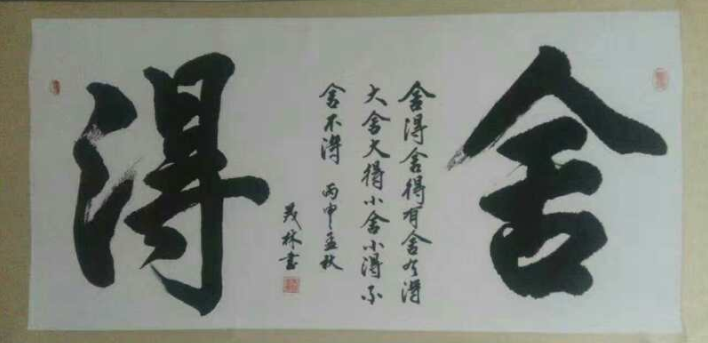 舍
舍得舍得有舍有得
大舍大得小舍小得不
舍不得 丙申孟秋
茂林书
得